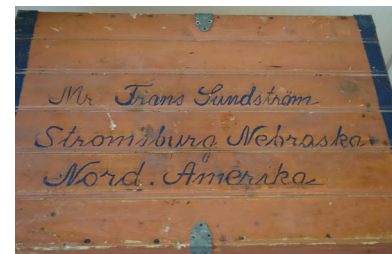 Mr Frans
Stromsburg Nebraska
Nord. Amerika